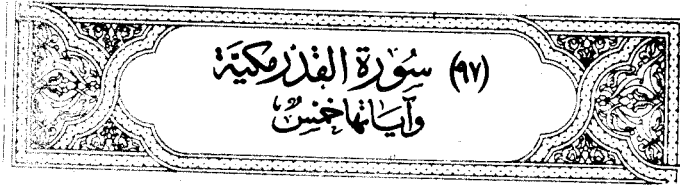 (٩٧) سُورَةُ القَدْرِ مَكِيَّة
وَآيَاتُهَا خَمْسٌ